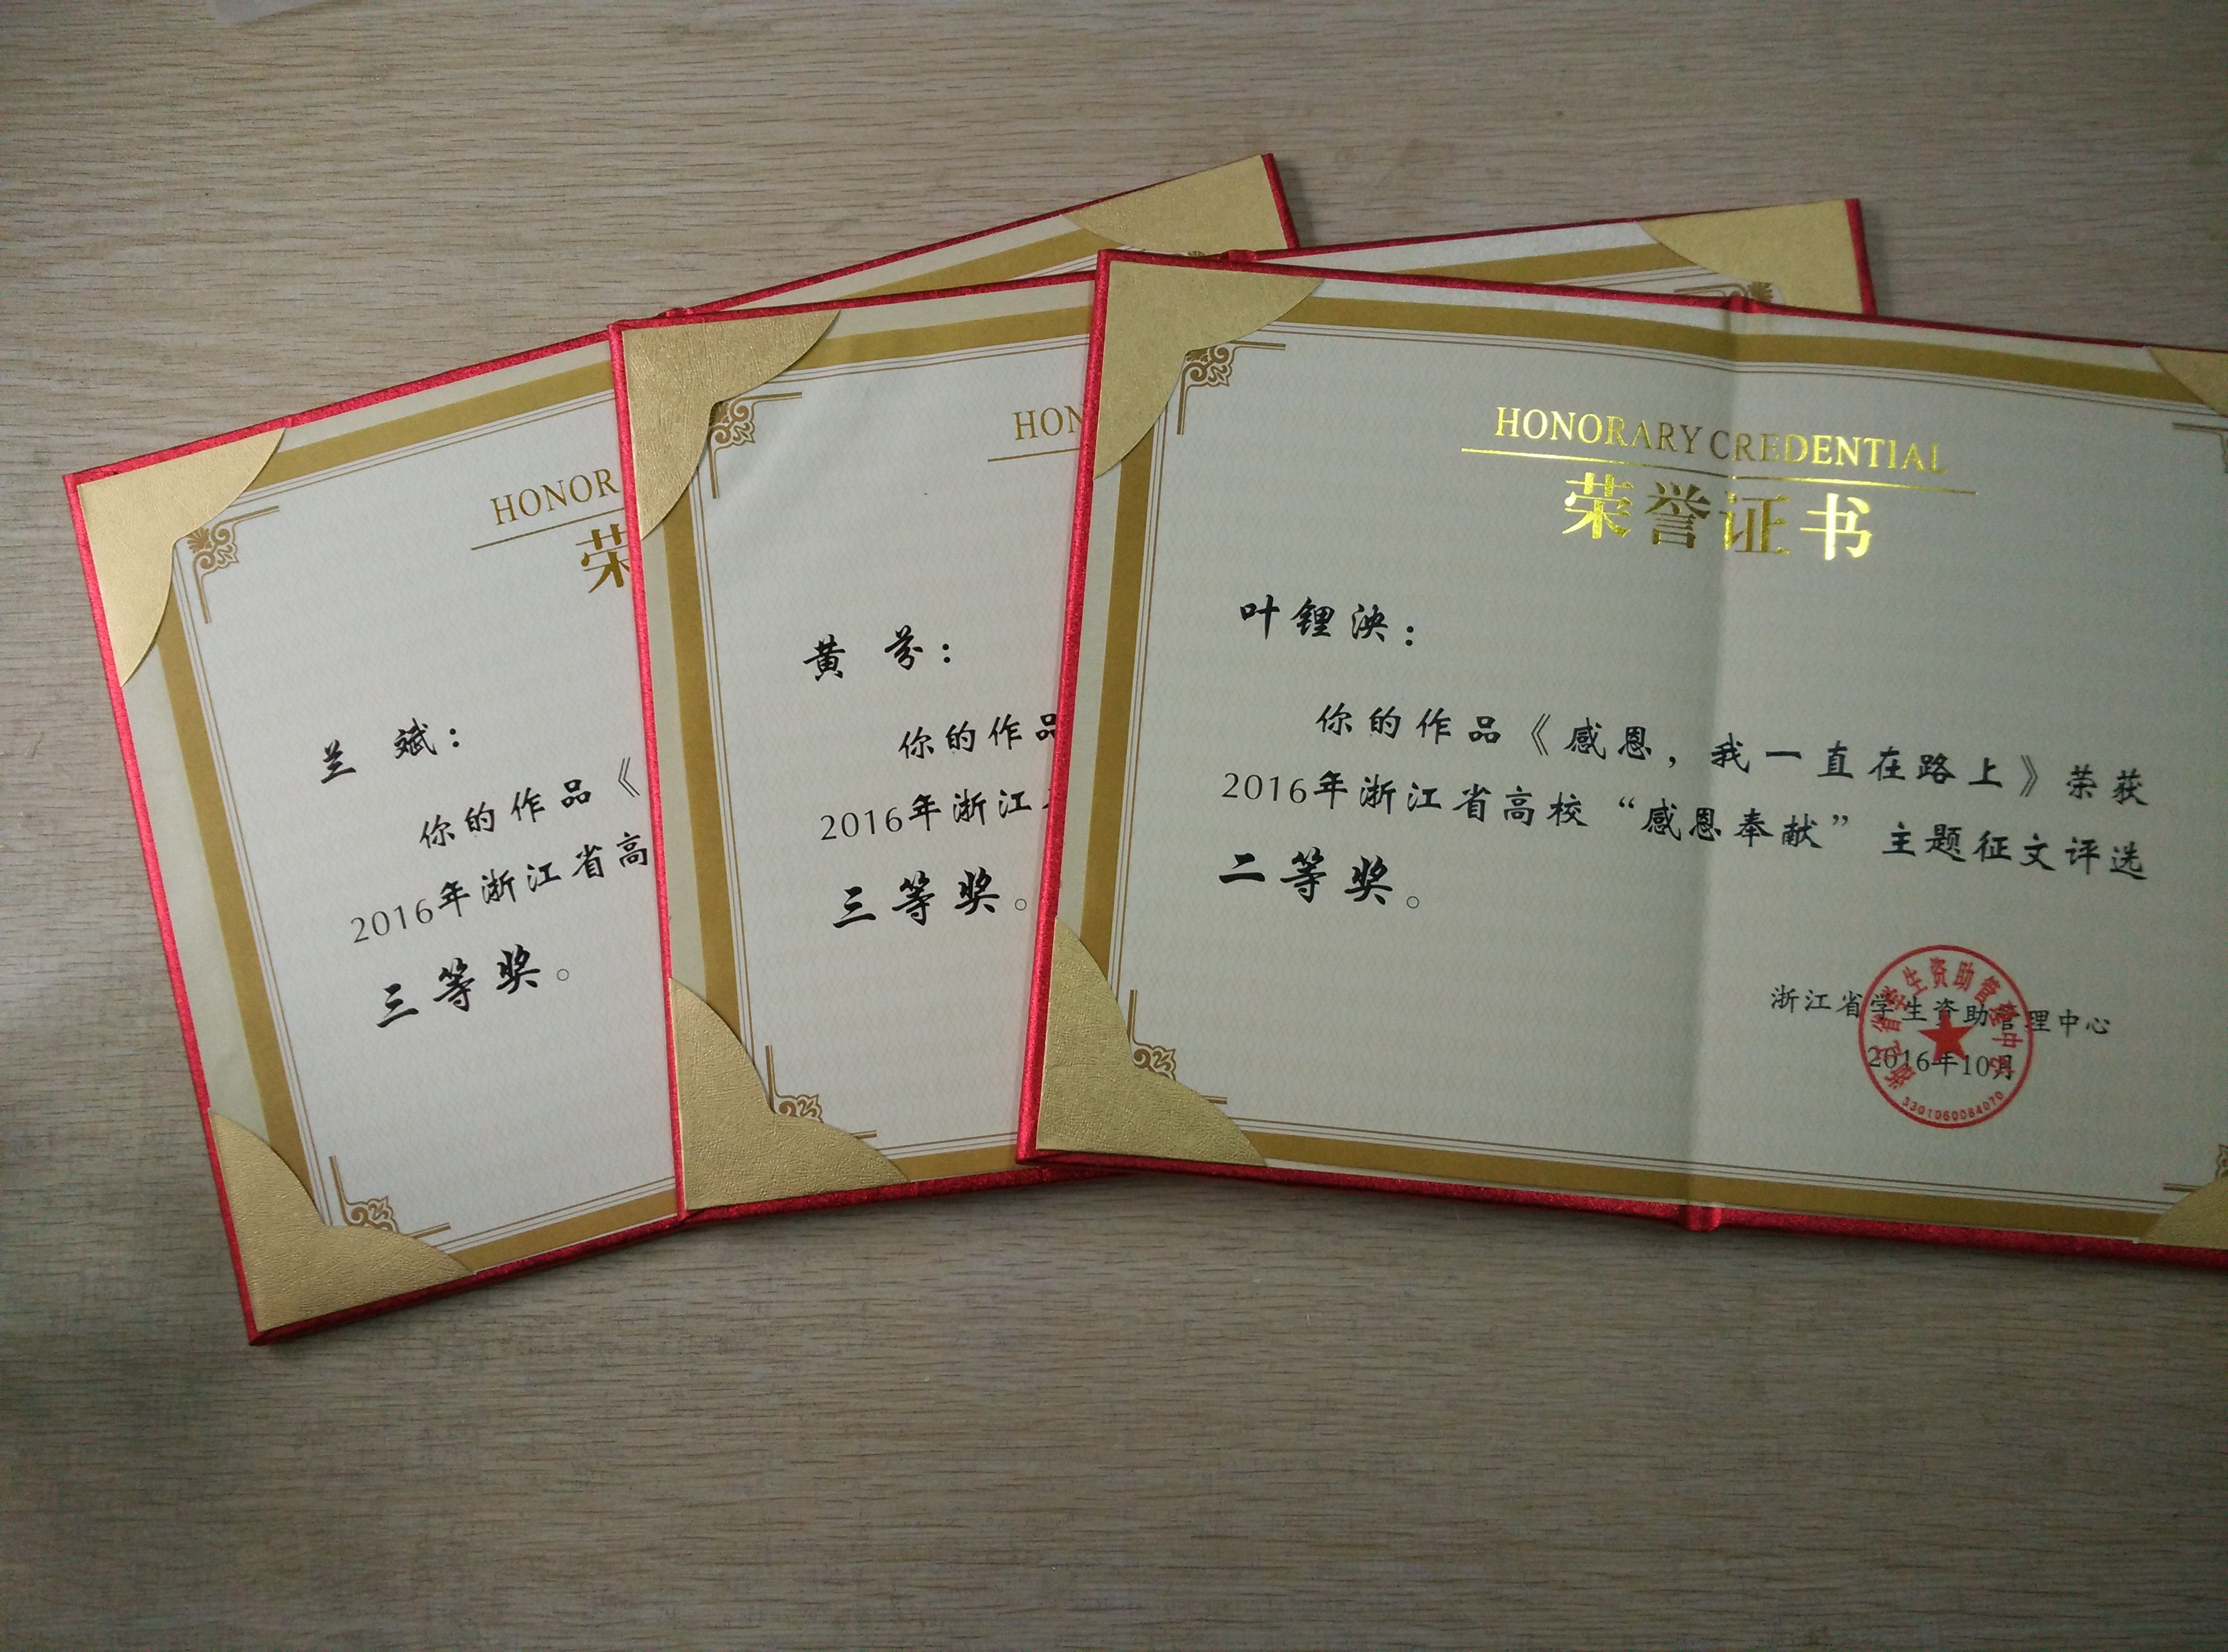 HONOR
荣
兰 斌：
你的作品《
2016年浙江省高
三等奖。
HON
黄 芬：
你的作品
2016年浙江
三等奖。
HONORARY CREDENTIAL
荣誉证书
叶锂泱：
你的作品《感恩，我一直在路上》荣获
2016年浙江省高校“感恩奉献”主题征文评选
二等奖。
浙江省学生资助管理中心
2016年10月
浙江省学生资助管理中心
3301060084070